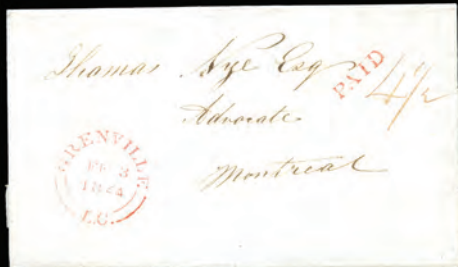 Thomas Nye Esq
PAID
4½
Advocate
Montreal
GRENVILLE
FE 3
L.C.